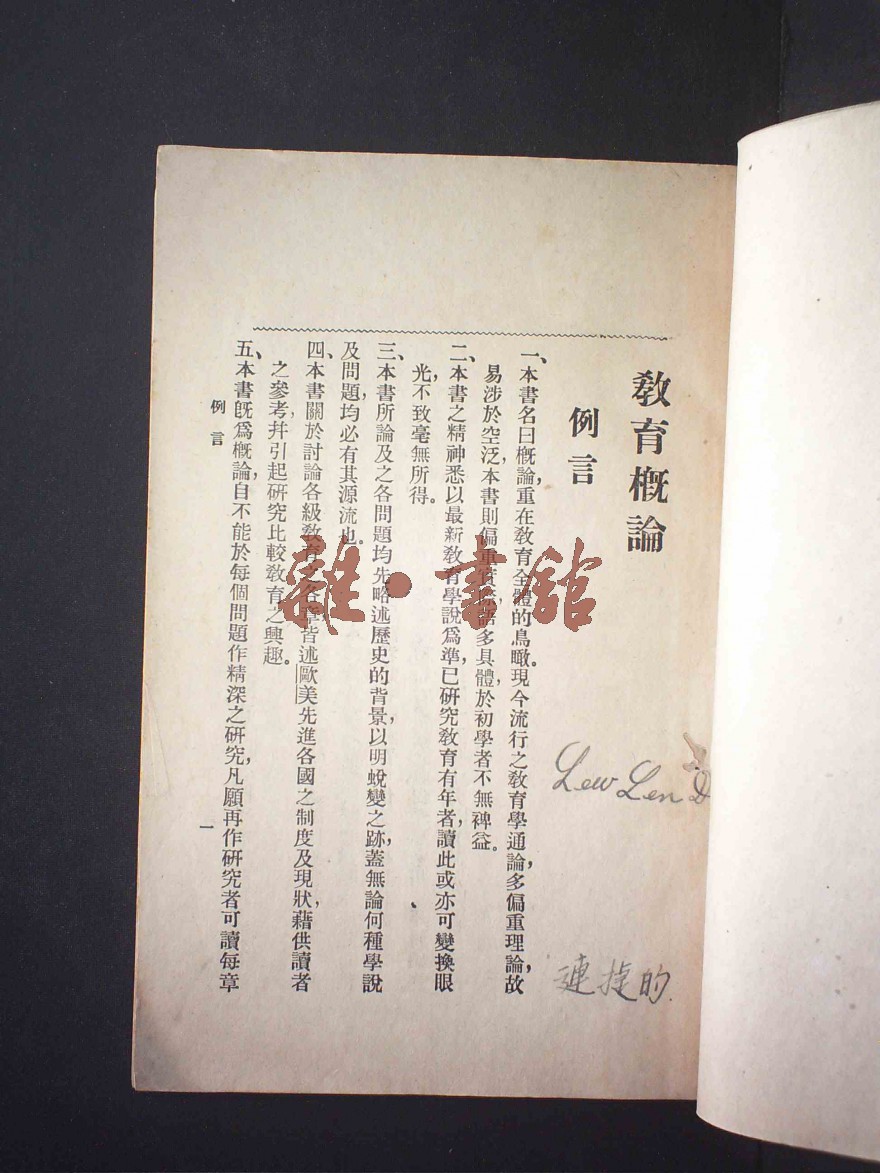 教育概論
例言
一、本書名曰概論，重在教育全體的鳥瞰。現今流行之教育學通論，多偏重理論，故
易涉於空泛，本書則偏重實際，語多具體，於初學者不無裨益。
二、本書之精神悉以最新教育學說爲準，已研究教育有年者，讀此或亦可變換眼
光，不致毫無所得。
三、本書所論及之各問題均先略述歷史的背景，以明蛻變之跡，蓋無論何種學說
及問題，均必有其源流也。
四、本書關於討論各級教育之各章皆述歐美先進各國之制度及現狀，藉供讀者
之參考，幷引起研究比較教育之興趣。
五、本書旣爲概論，自不能於每個問題作精深之研究，凡願再作研究者可讀每章
例言
一
Lew Len D
連捷的
雜·書館